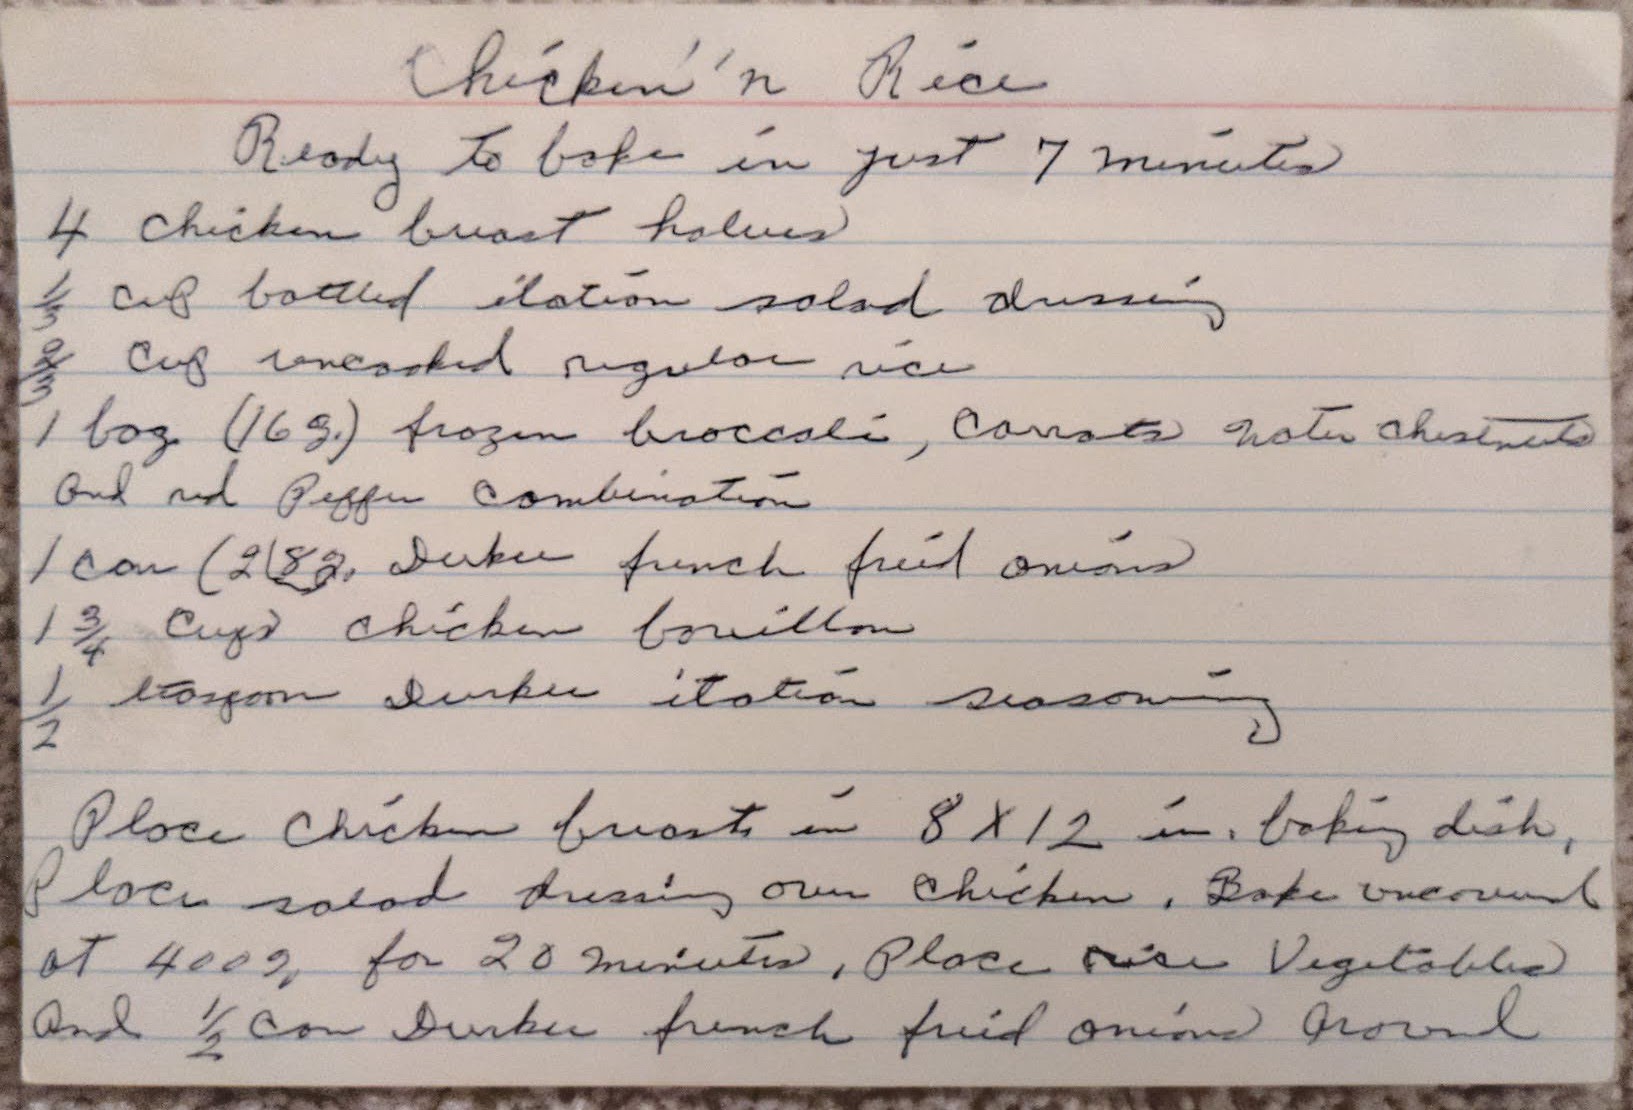 Chicken 'n Rice
Ready to bake in just 7 minutes
4 chicken breast halves
1/3 cup bottled itatian salad dressing
2/3 cup uncooked regular rice
1 bag (16 g.) frozen broccoli, carrots water chestnuts
and red Pepper combination
1 can ( Durkee french fried onions
1 3/4 cups chicken bouillon
1/2 teaspoon Durkee itatian seasoning
Place chicken breasts in 8 X 12 in. baking dish,
Place salad dressing over chicken. Bake uncovered
at for 20 minutes. Place rice Vegetables
and 1/2 can Durkee french fried onions around